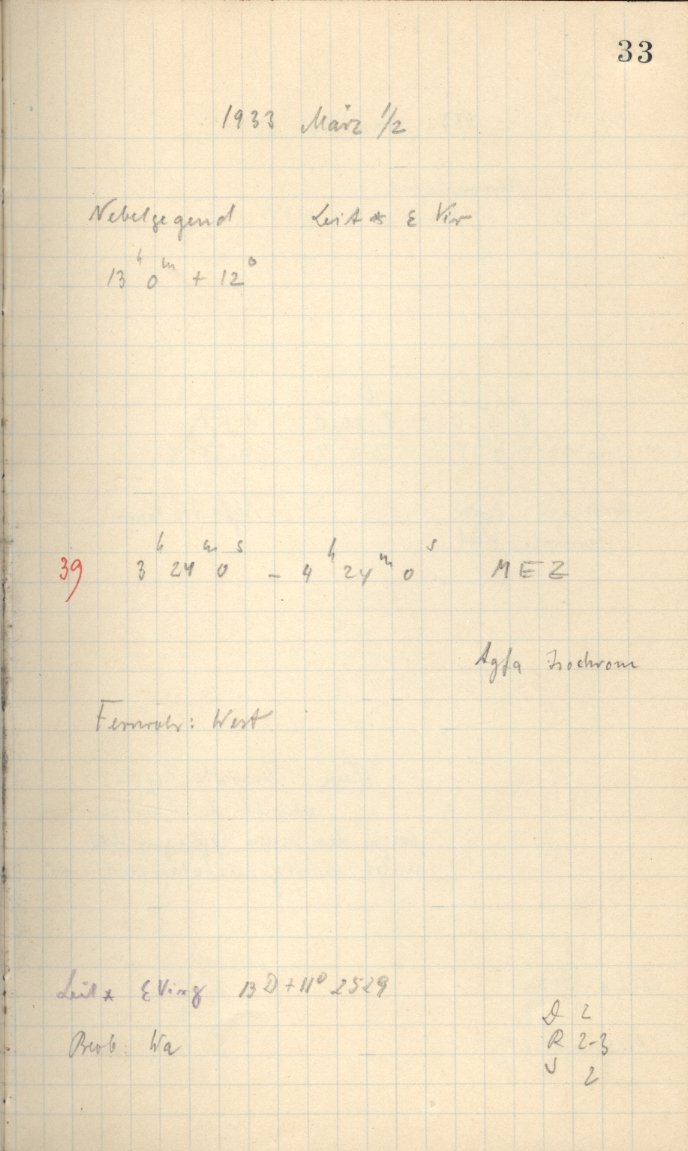 33
1933 März 1/2
Nebelgegend Leit * ε Vir
13h 0m + 12°
39 3h 24m 0s – 4h 24m 0s MEZ
Agfa Isochrom
Fernrohr: West
Leit * ε Virg BD + 11° 2529
Beob. Wa
D 2
R 2-3
S 2